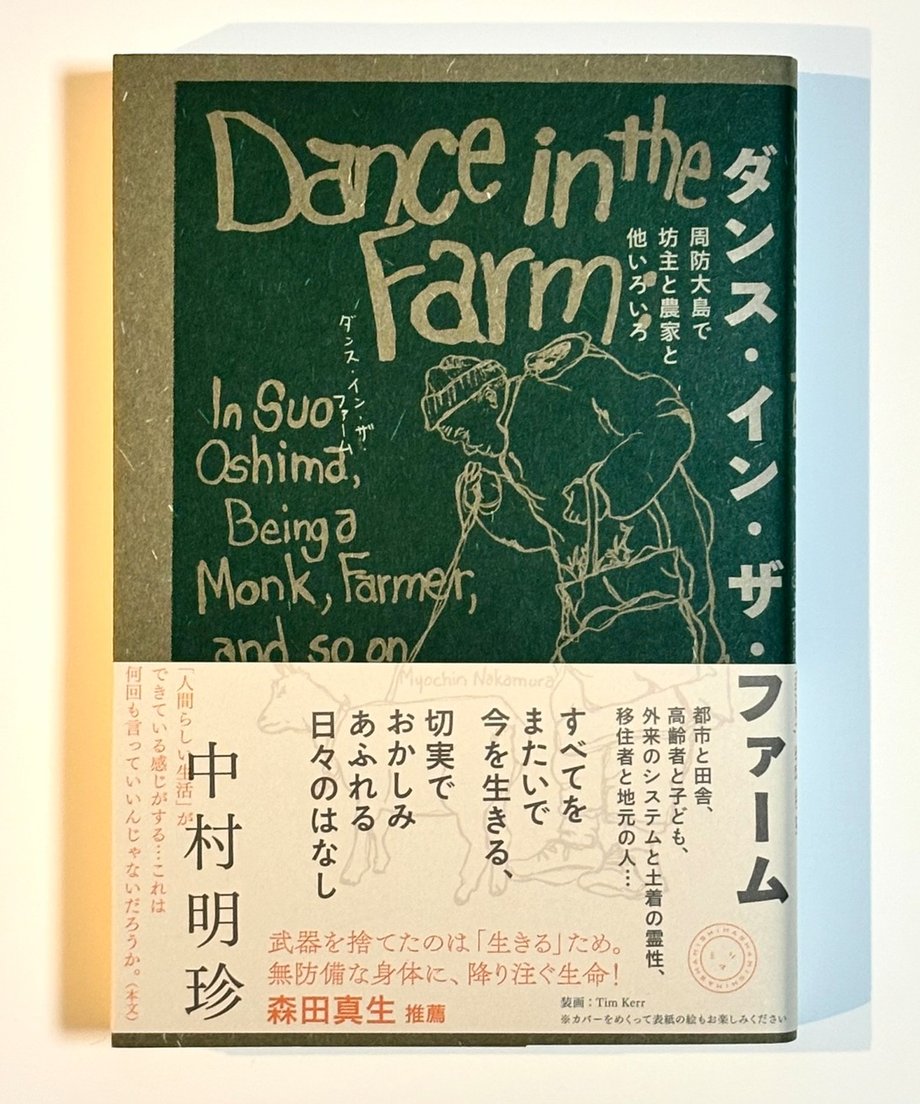 Dance in the
Farm:
ダンス・イン・ザ・ファーム
周防大島で
坊主と農家と
他いろいろ
ダンス・イン・ザ・
ファーム
In Suo
Oshima,
Being a
Monk, Farmer,
and so on
Myochin Nakamura
都市と田舎、
高齢者と子ども、
外来のシステムと土着の霊性、
移住者と地元の人…
すべてを
またいで
今を生きる、
切実で
おかしみ
あふれる
日々のはなし
中村明珍
「人間らしい生活」が
できている感じがする…これは
何回も言っていいんじゃないだろうか。(本文)
武器を捨てたのは「生きる」ため。
無防備な身体に、降り注ぐ生命!
森田真生 推薦
シマミ
装画:Tim Kerr
※カバーをめくって表紙の絵もお楽しみください